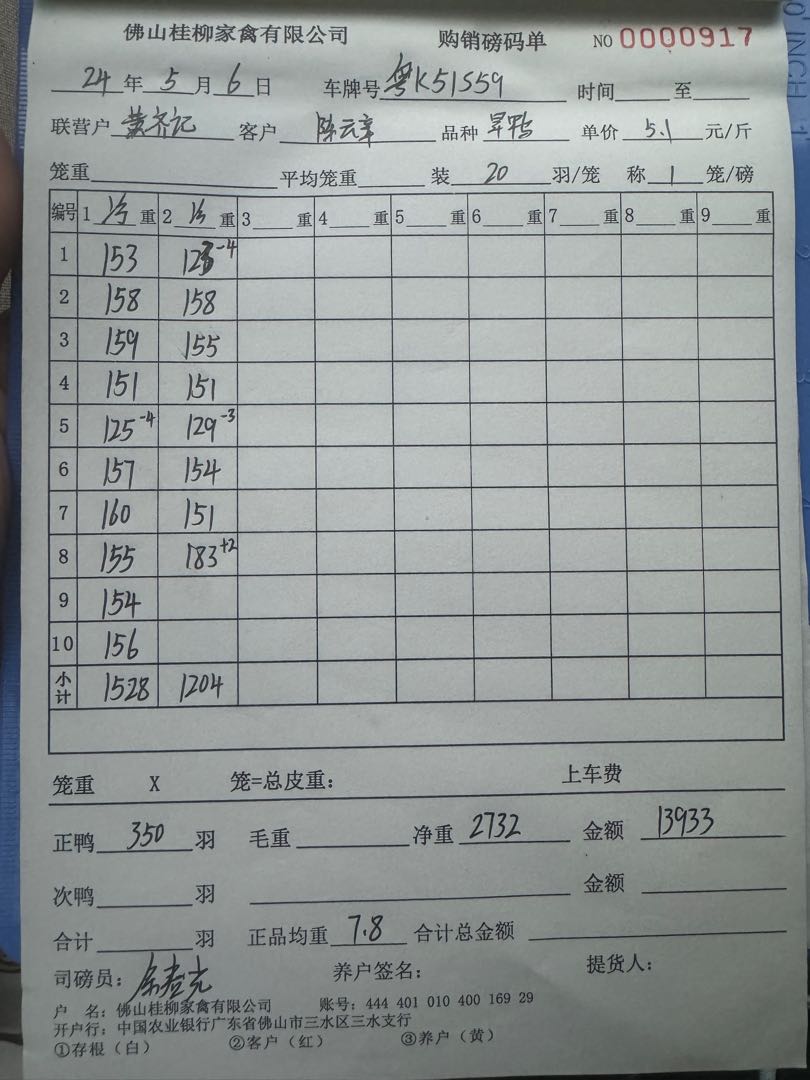 佛山桂柳家禽有限公司 购销磅码单 NO 0000917
24年5月6日 车牌号 粤K51S59 时间 至
联营户 黄齐记 客户 陈云章 品种 旱鸭 单价 5.1 元/斤
笼重 平均笼重 装 20 羽/笼 称 1 笼/磅
编号 1 重 2 重 3 重 4 重 5 重 6 重 7 重 8 重 9 重
1 153 123 -4
2 158 158
3 159 155
4 151 151
5 125 -4 129 -3
6 157 154
7 160 151
8 155 183 +2
9 154
10 156
小计 1528 1204
笼重 X 笼=总皮重: 上车费
正鸭 350 羽 毛重 净重 2732 金额 13933
次鸭 羽 金额
合计 羽 正品均重 7.8 合计总金额
司磅员: 养户签名: 提货人:
户 名: 佛山桂柳家禽有限公司 账号: 444 401 010 400 169 29
开户行: 中国农业银行广东省佛山市三水区三水支行
①存根（白） ②客户（红） ③养户（黄）